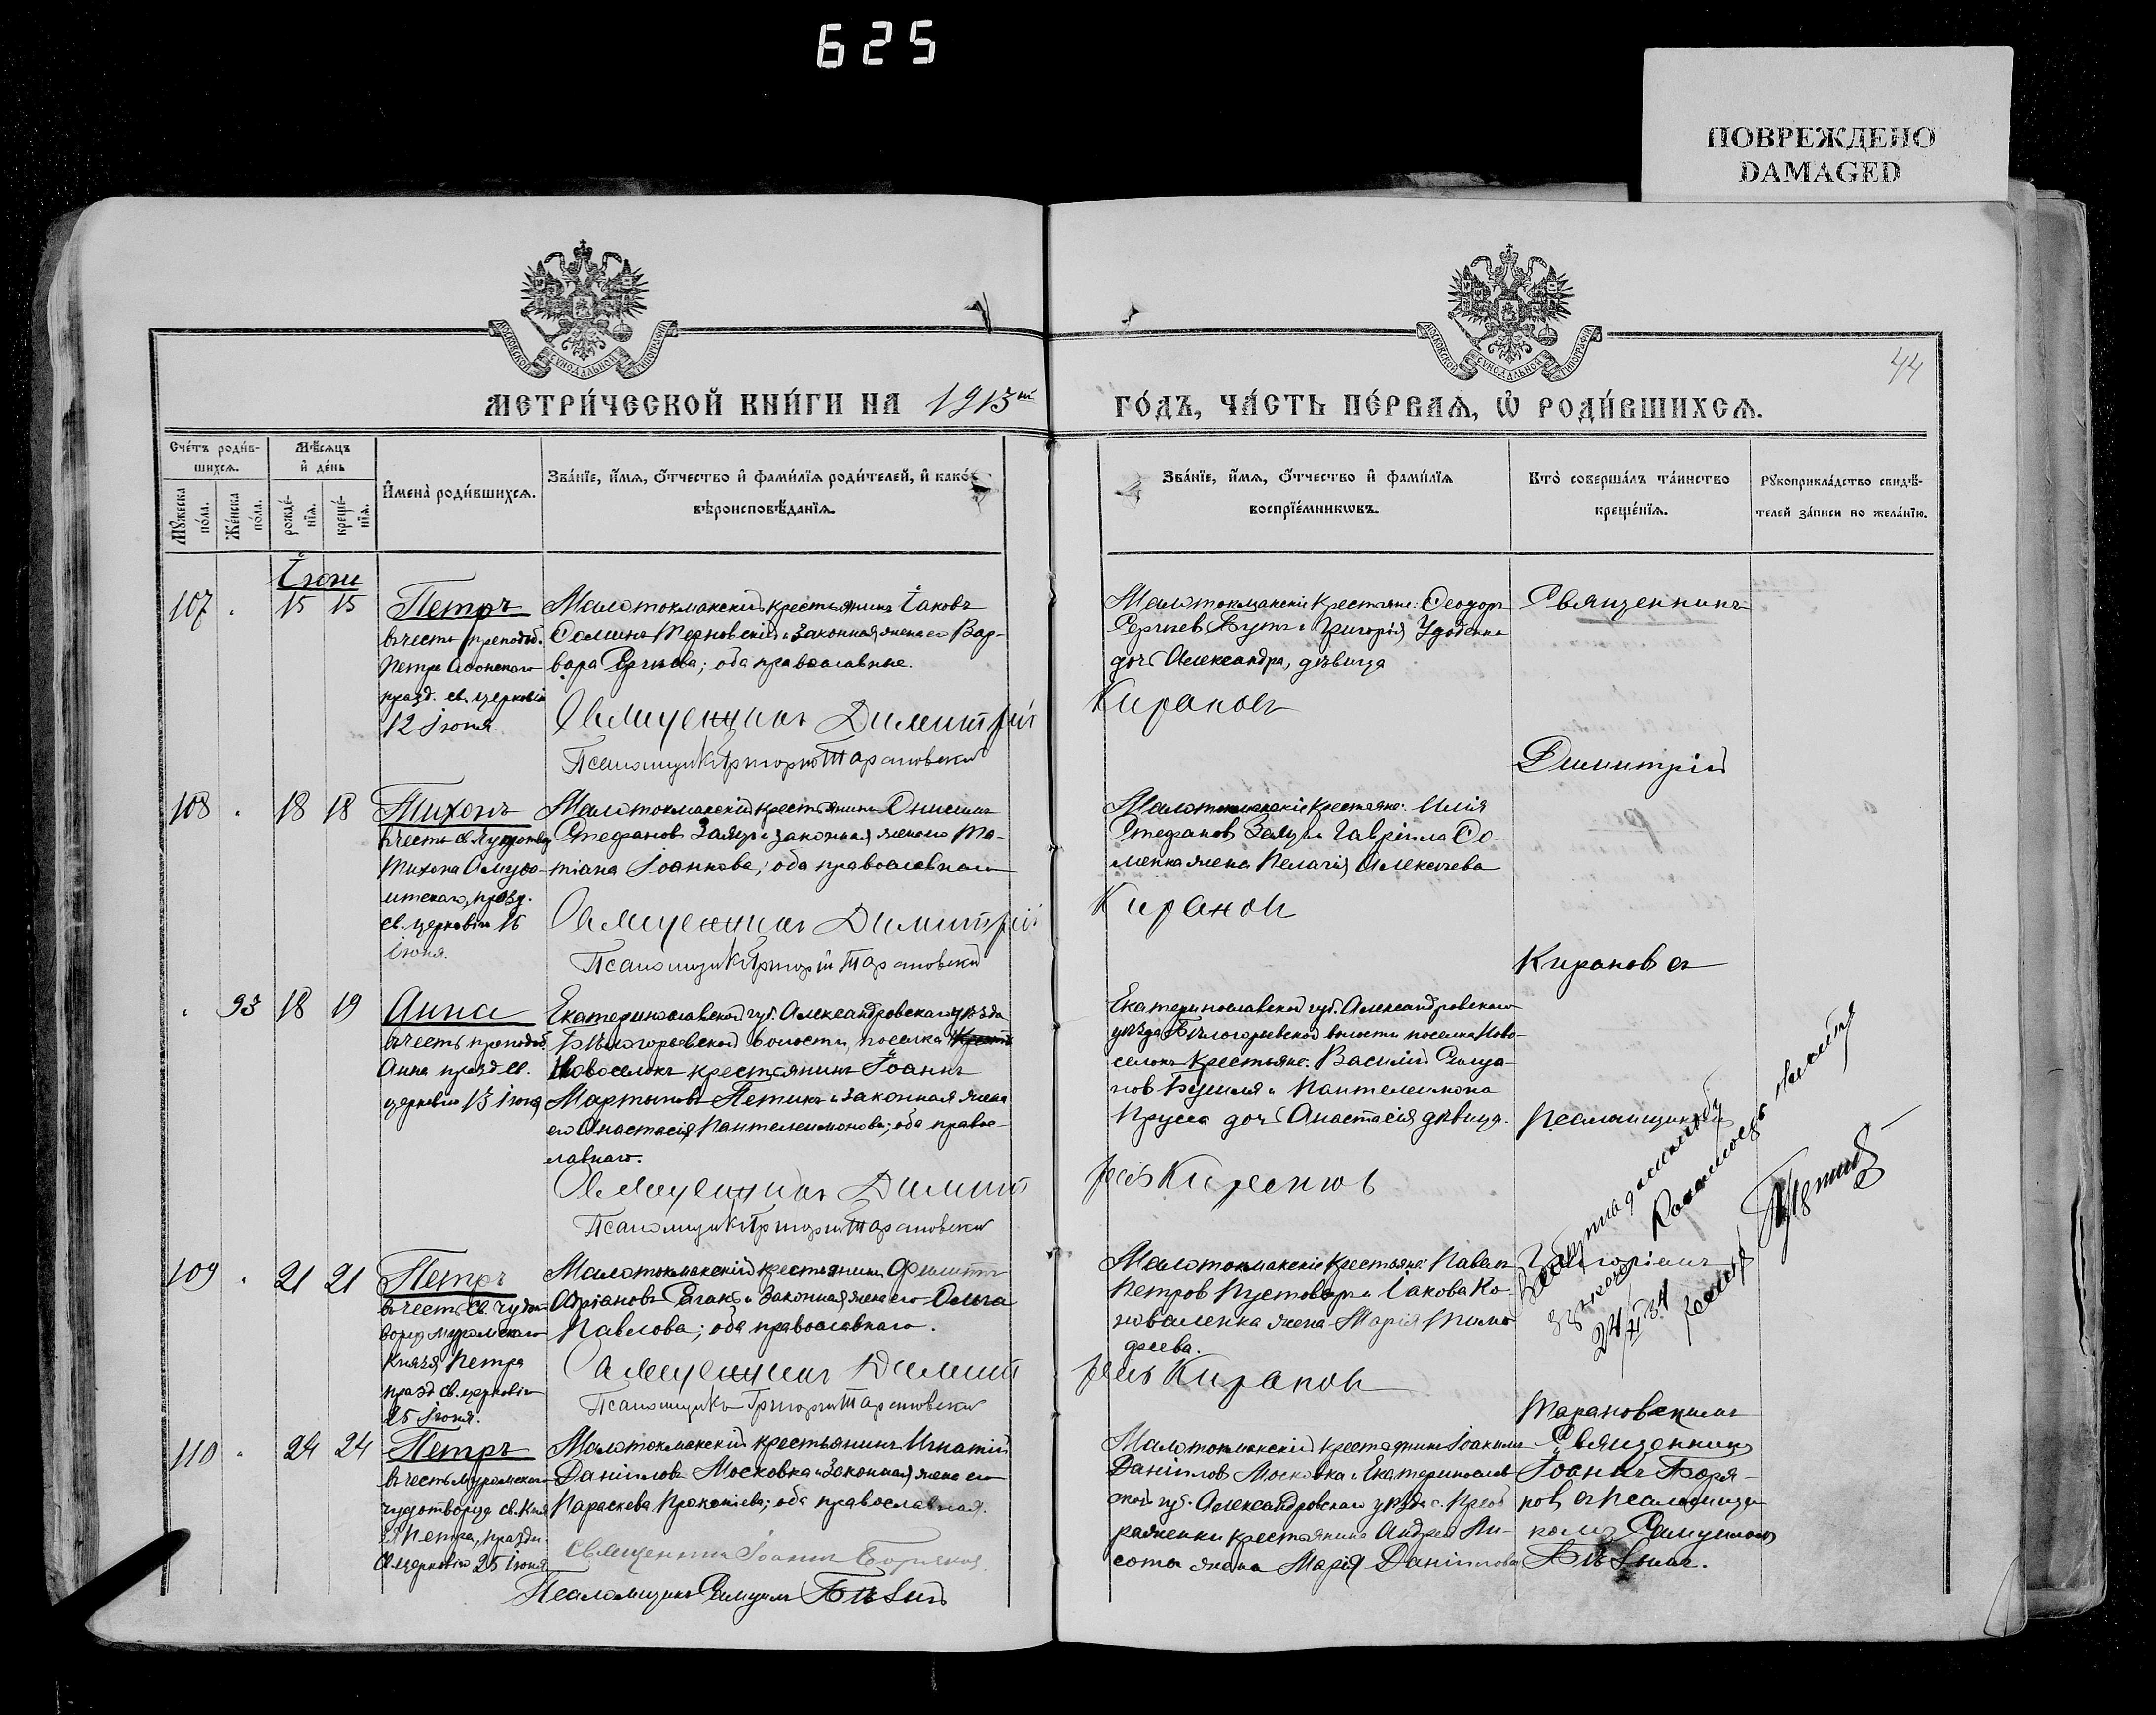 625
ПОВРЕЖДЕНО
DAMAGED
МОСКОВСКОЙ СѴНОДАЛЬНОЙ ТИПОГРАФІИ
МОСКОВСКОЙ СѴНОДАЛЬНОЙ ТИПОГРАФІИ
44
МЕТРИ́ЧЕСКОЙ КНИ́ГИ НА 1913й
ГО́ДЪ, ЧА́СТЬ ПЕ́РВАѦ, Ѡ҆ РОДИ́ВШИХСѦ.
Сче́тъ роди́в-
шихсѧ.
Мѣ́сѧцъ
и҆ де́нь
Мꙋ́жеска
по́ла.
Же́нска
по́ла.
рожде́-
нїѧ.
креще́-
нїѧ.
И҆мена̀ роди́вшихсѧ.
Зва́нїе, и҆́мѧ, ѻ҆́тчество и҆ фами́лїѧ роди́телей, и҆ како́г
вѣроисповѣ́данїѧ.
Зва́нїе, и҆́мѧ, ѻ҆́тчество и҆ фами́лїѧ
воспрїе́мникѡвъ.
Кто̀ соверша́лъ та́инство
креще́нїѧ.
Рꙋкоприкла́дство свидѣ́-
телей за́писи по жела́нїю.
Іюнь
107 15 15 Петръ
въ честь преподоб.
Петра Аѳонскаго
празд. св. церковію
12 Іюня.
Малотокмакскій крестьянинъ Іаковъ
Ѳоминъ Терновскій и законная жена его Вар-
вара Сергіева; оба православные.
Священникъ Димитрій
Псаломщикъ Григорій Тарановскій
Малотокмакскіе крестьяне: Ѳеодоръ
Сергіев Бутъ и Григорія Удобенка
дочь Александра, дѣвица
Кирановъ
Священникъ
Димитрій
108 18 18 Тихонъ
въ честь св. Чудотвор
Тихона Амаѳу-
итскаго, празд.
св. церковію 16
Іюня.
Малотокмакскій крестьянинъ Онисимъ
Стефановъ Заяцъ и законная жена его Та-
тіана Іоаннова; оба православнаго
Священникъ Димитрій
Псаломщикъ Григорій Тарановскій
Малотокмакскіе крестьяне: Илія
Стефановъ Заяцъ и Гавріила Ѳо-
менка жена Пелагія Алексѣева
Кирановъ
Кирановъ съ
93 18 19 Анна
въ честь преподоб.
Анны празд св.
церковію 13 Іюня
Екатеринославской губ. Александровскаго уѣзда
Бѣлогорьевской волости, поселка
Новоселокъ крестьянинъ Іоаннъ
Мартыновъ Петикъ и законная жена
его Анастасія Пантелеимонова; оба право-
славнаго.
Священникъ Димит
Псаломщикъ Григорій Тарановскій
Екатеринославской губ. Александровскаго
уѣзда Бѣлогорьевской волости поселка Ново-
селокъ крестьяне: Василій
нов и Пантелеимона
Прусса дочь Анастасія дѣвица.
рій Кирановъ
Псаломщикомъ
24/II 34
109 21 21 Петръ
въ честь св. чудо-
ворца муромскаго
Князя Петра
празд св. церковію
25 Іюня.
Малотокмакскій крестьянинъ Филиппъ
Адріановъ и законная жена его Ольга
Павлова; оба православнаго.
Священникъ Димит
Псаломщикъ Григорій Тарановскій
Малотокмакскіе крестьяне: Павелъ
Петров Пустоваръ и Іакова Ко-
новаленка жена Марія Тимо
ѳеева.
рій Кирановъ
Григоріемъ
Тарановскимъ
110 24 24 Петръ
въ честь Муромскаго
чудотворца св. Кня
зя Петра, праздн
св. церковію 25 Іюня
Малотокмакскій крестьянинъ Игнатій
Даніиловъ Московка и законная жена его
Параскева Прокопіева; оба православная.
Священникъ Іоаннъ Боряковъ
Псаломщикъ Самуилъ Бѣлый
Малотокмакскій крестьянинъ Іоакимъ
Даніилов Московка и Екатеринослав
ской губ. Александровскаго уѣзда с. Преоб
раженки крестьянина Андрея Ли-
сота жена Марія Даніилова
Священникъ
Іоаннъ Боря-
ковъ съ псаломщи
комъ Самуиломъ
Бѣлымъ.